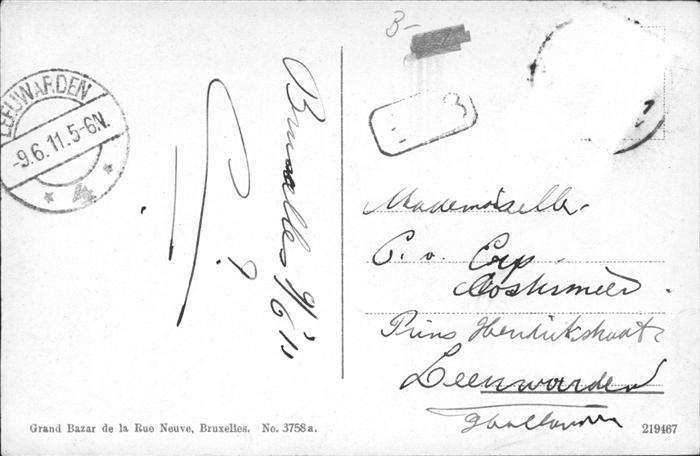 B-
LEEUWARDEN
-9.6.11.5-6N.
* 4 *
Bruxelles 9/6 11
3
Mademoiselle
C. v. Erp
Oostermeer
Prins Hendrikstraat
Leeuwarden
Hollande
Grand Bazar de la Rue Neuve, Bruxelles. No. 3758 a.
219467